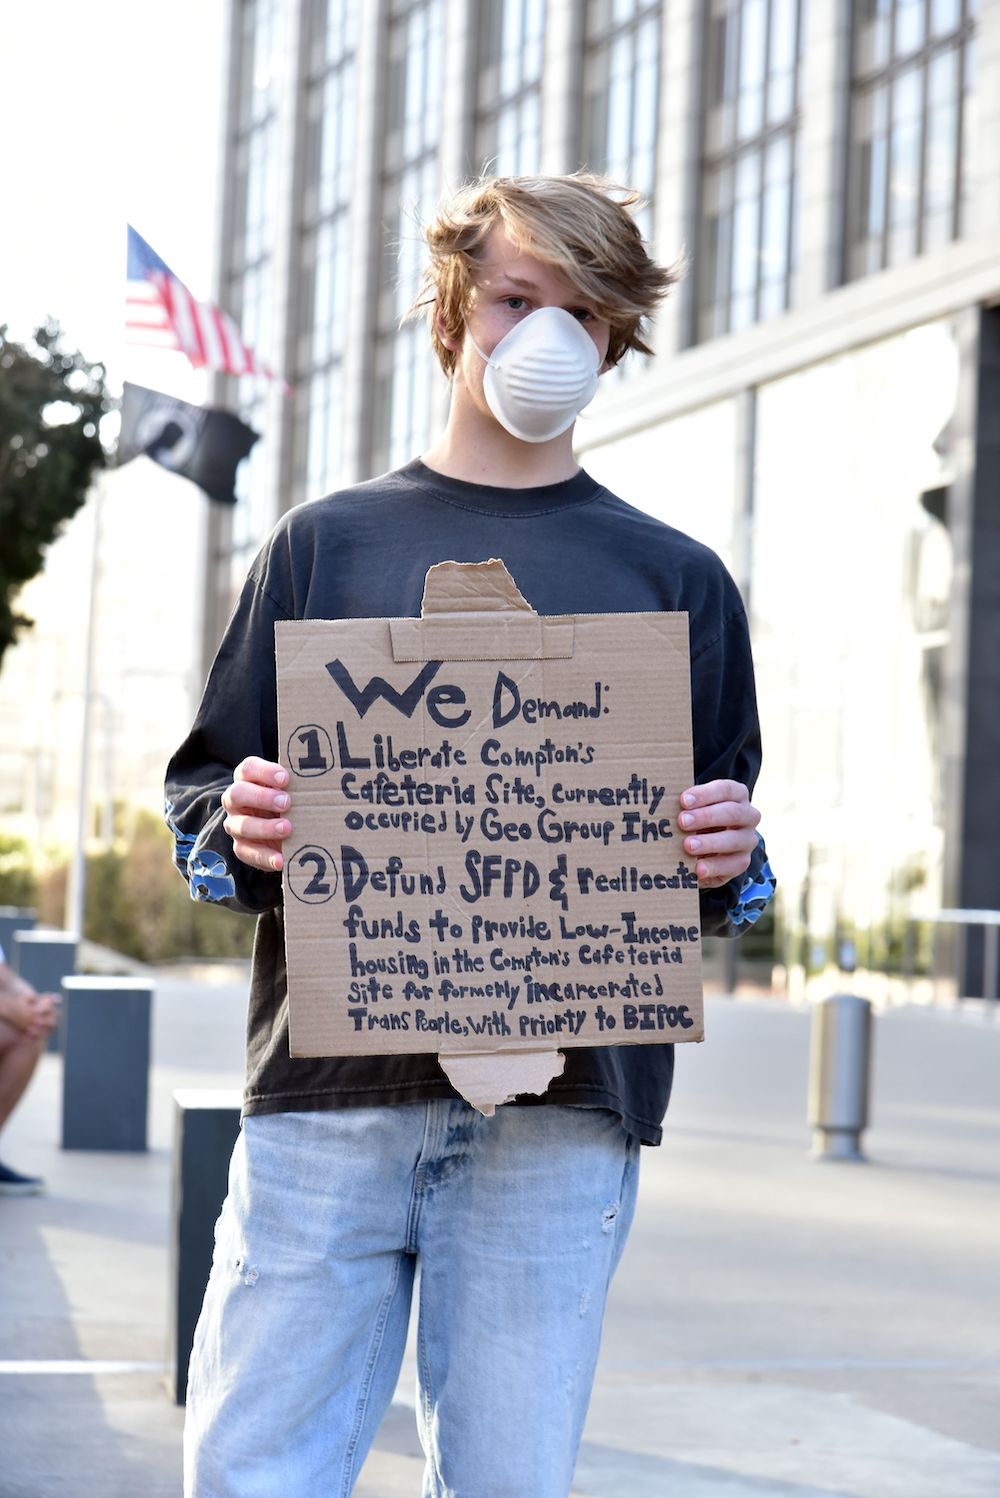 We Demand:
1 Liberate Compton's
Cafeteria Site, currently
occupied by Geo Group Inc
2 Defund SFPD & reallocate
funds to provide Low-Income
housing in the Compton's Cafeteria
Site for formerly incarcerated
Trans People, with priority to BIPOC